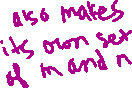 also makes
its own set
of m and n